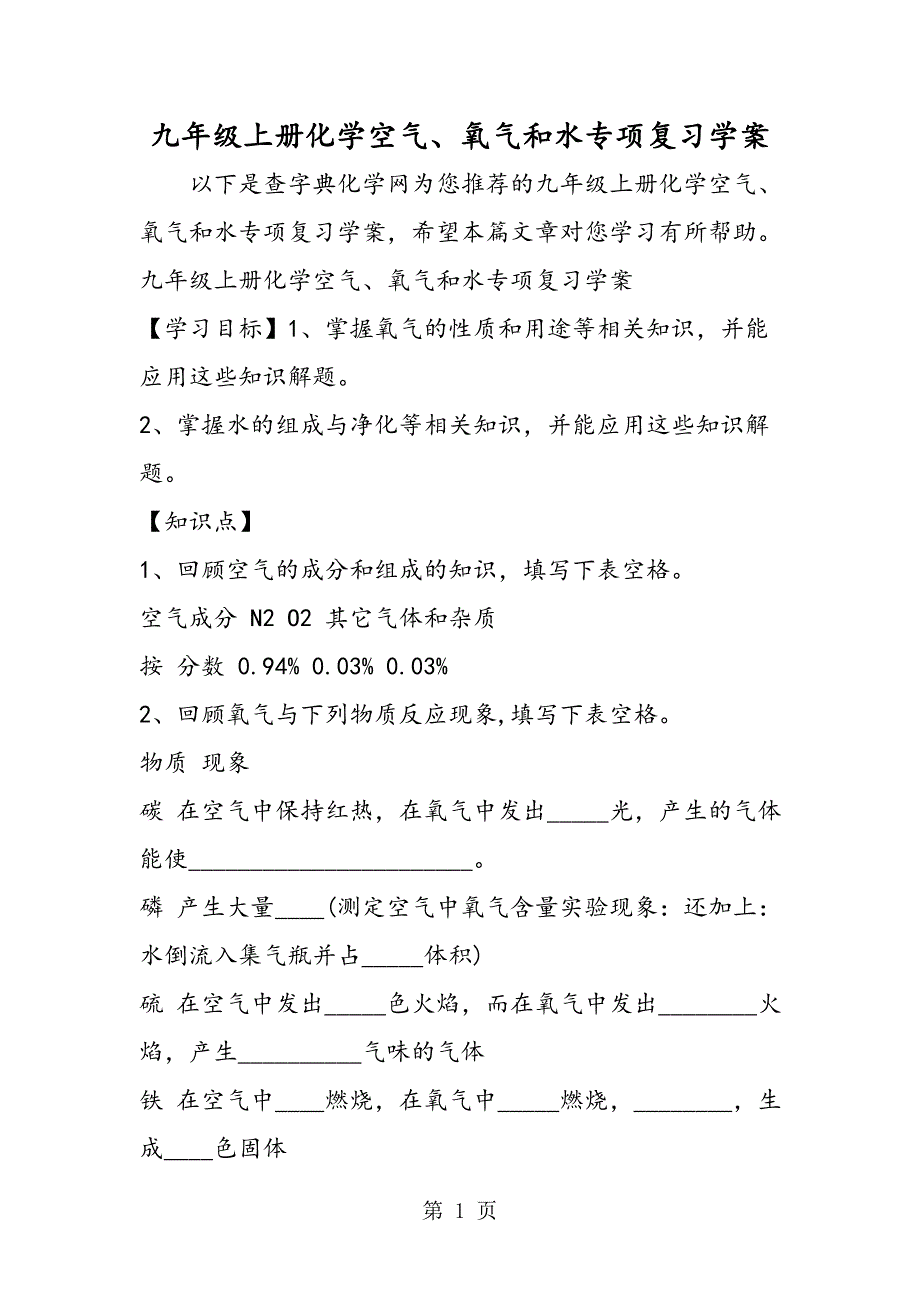 九年级上册化学空气、氧气和水专项复习学案
以下是查字典化学网为您推荐的九年级上册化学空气、
氧气和水专项复习学案，希望本篇文章对您学习有所帮助。
九年级上册化学空气、氧气和水专项复习学案
【学习目标】1、掌握氧气的性质和用途等相关知识，并能
应用这些知识解题。
2、掌握水的组成与净化等相关知识，并能应用这些知识解
题。
【知识点】
1、回顾空气的成分和组成的知识，填写下表空格。
空气成分 N2 O2 其它气体和杂质
按 分数 0.94% 0.03% 0.03%
2、回顾氧气与下列物质反应现象,填写下表空格。
物质 现象
碳 在空气中保持红热，在氧气中发出_____光，产生的气体
能使_______________________。
磷 产生大量____(测定空气中氧气含量实验现象：还加上：
水倒流入集气瓶并占_____体积)
硫 在空气中发出_____色火焰，而在氧气中发出________火
焰，产生__________气味的气体
铁 在空气中____燃烧，在氧气中_____燃烧，________，生
成____色固体
第 1 页